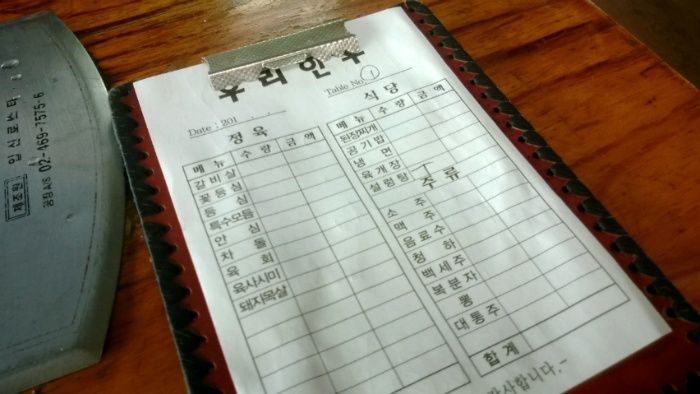 우리한우
Date : 201 . . .
Table No. 1
정육
메뉴 수량 금액
갈비살
꽃등심
등심
특수모듬
안심
차돌
육회
육사시미
돼지목살
식당
메뉴 수량 금액
된장찌개
공기밥
냉면
육개장
설렁탕
주류
소주
맥주
음료수
청하
백세주
복분자
뽕
대통주
합계
감사합니다.-
제조원
임신로쓰타
02-469-7575-6